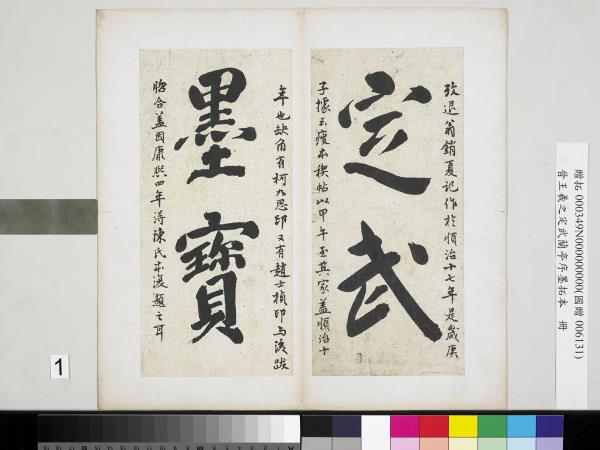 攷退翁銷夏記作於順治十七年是歲庚
定武
子據云瘦本稧帖以甲午至其家蓋順治十
年也缺角有柯九思印又有趙士楨印与後跋
墨寶
脗合蓋因康熙四年得陳氏本後題之耳
贈拓 000349N000000000(國贈 006131)
晉王羲之定武蘭亭序墨拓本 冊
1